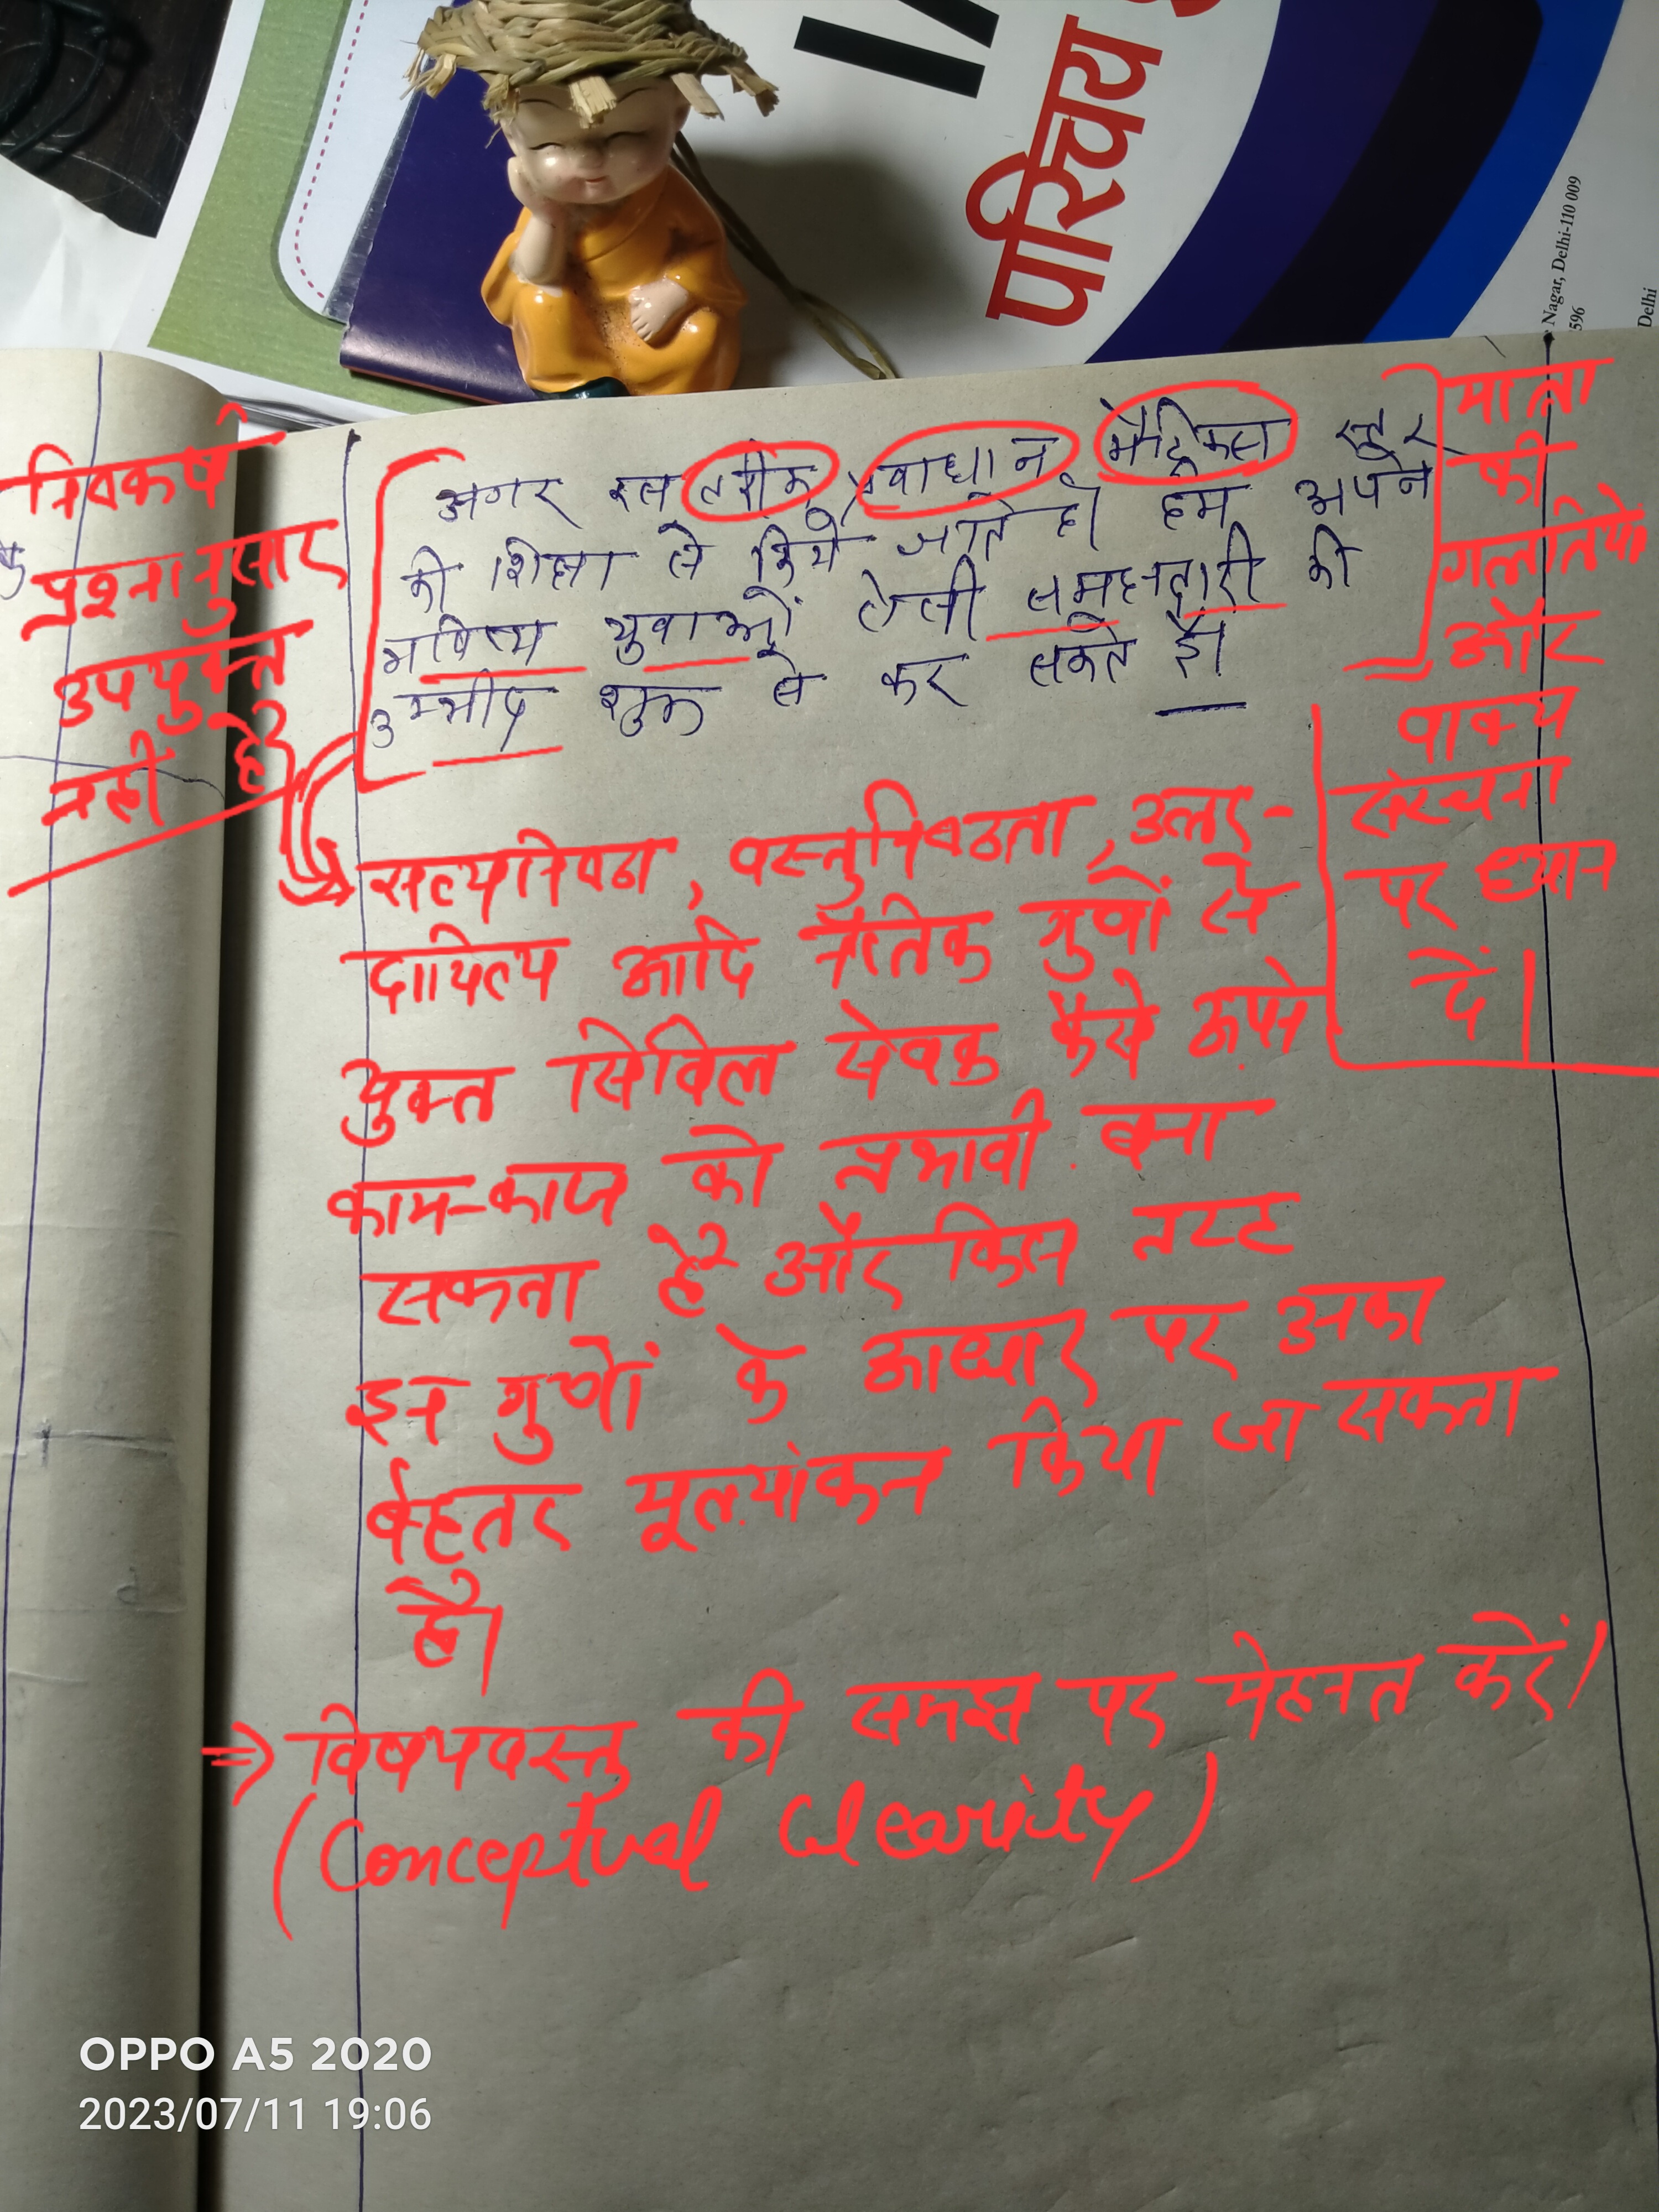 परिचय
Nagar, Delhi-110 009
596
Delhi
निष्कर्ष
प्रश्नानुसार
उपयुक्त
नहीं है
अगर इस तरीके, प्रावधान मैट्रिक्स स्तर
की शिक्षा से किये जाते हो हम अपने
भविष्य युवाओं ऐसी समझदारी की
उम्मीद शुरू से कर सकते है।
मात्रा
की
गलतियों
और
वाक्य
संरचना
पर ध्यान
दें।
सत्यनिष्ठा, वस्तुनिष्ठता, उत्तर-
दायित्व आदि नैतिक गुणों से
युक्त सिविल सेवक कैसे अपने
काम-काज को प्रभावी बना
सकता है और किस तरह
इन गुणों के आधार पर उनका
बेहतर मूल्यांकन किया जा सकता
है।
⇒ विषयवस्तु की समझ पर मेहनत करें।
(Conceptual Clearity)
OPPO A5 2020
2023/07/11 19:06